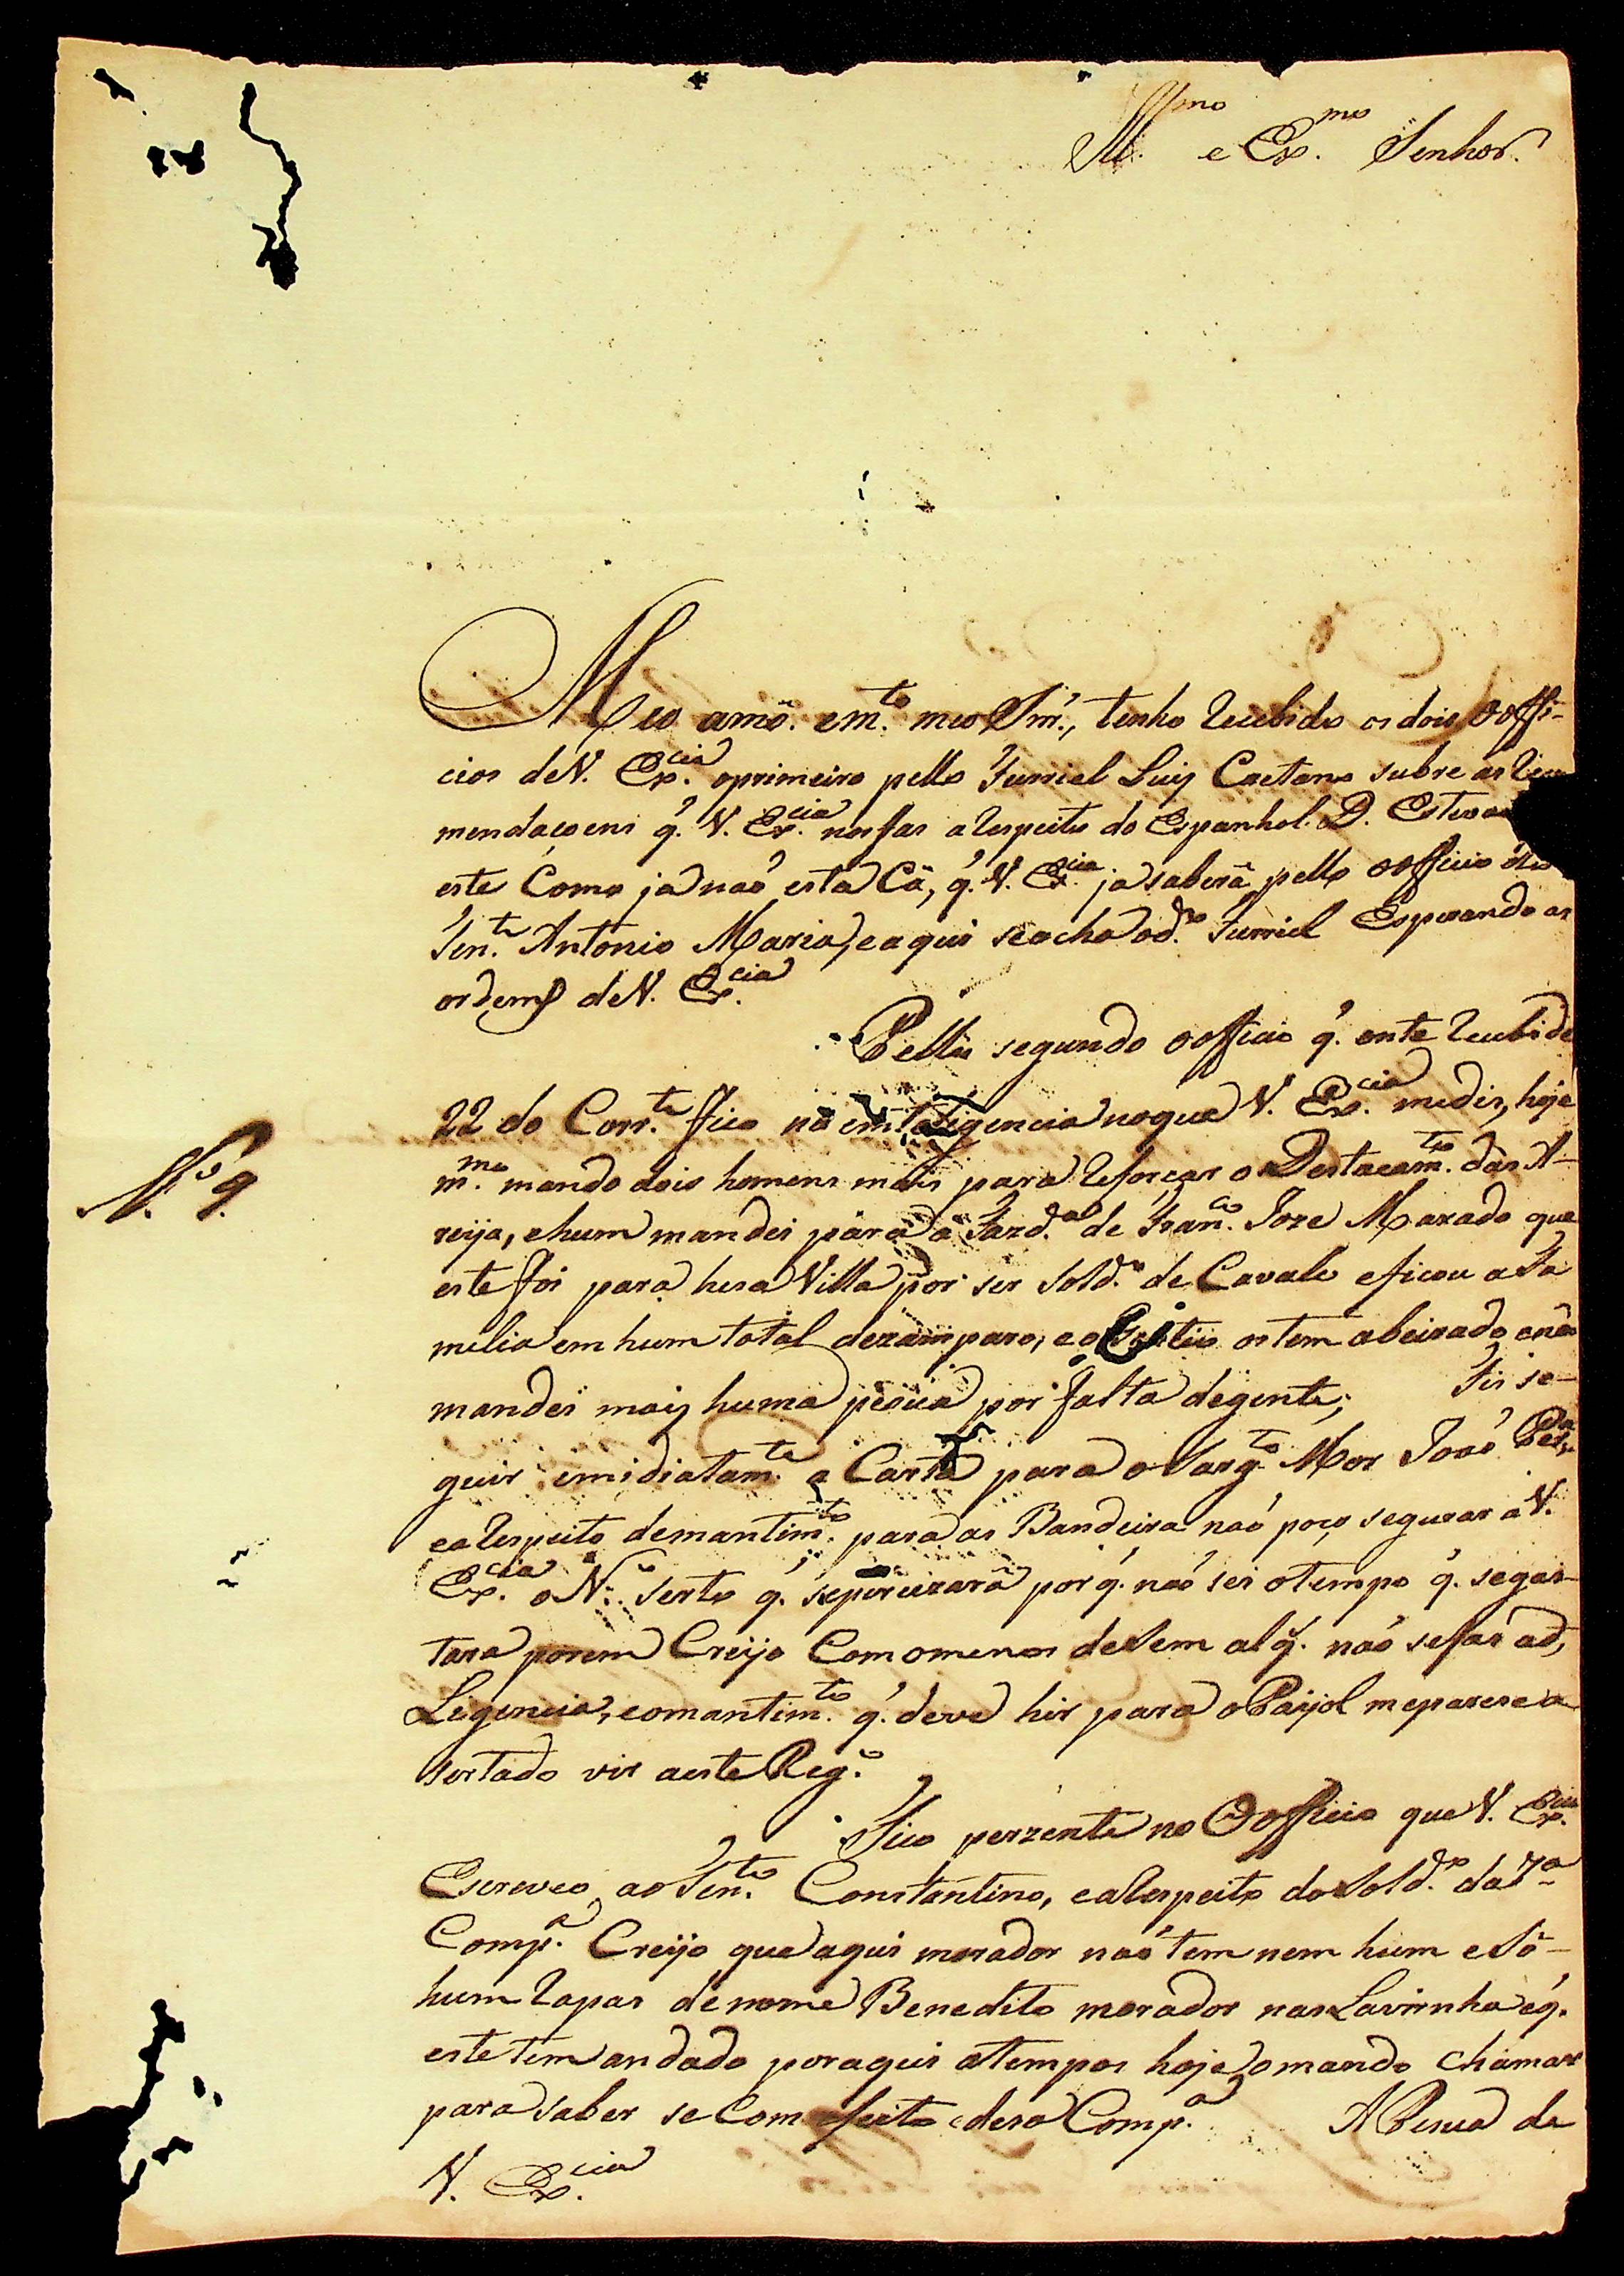 Ill.mo e Ex.mo Senhor.
Meo amo. e m.to meo Snr., tenho recebido os dois Ooffi-
cios de V. Ex.cia o primeiro pello Furriel Luiz Caetano subre as
mendaçoens q. V. Ex.cia nos fas a respeito do Espanhol D.
este Como ja naó esta Cá, q. V. Ex.cia ja saberá pello oofficio do
Ten.te Antonio Maria, e aqui se acha o d.o Furriel Esperando as
ordems de V. Ex.cia
Pello segundo oofficio q. onte recubi de
22 do Corr.te fico na emteligencia no que V. Ex.cia me dis, hoje
m.mo mando dois homens mais para reforçar o Destacam.to das A-
reija, e hum mandei para a Fazd.a de Fran.co Joze Maxado que
este foi para hesa Villa por ser Sold.o de Cavalo e ficou a Fa
milia em hum total dezamparo, e o os tem abeirado e não
mandei maiz huma pesua por falta de gente; Fis se-
guir imidiatam.te a Carta para o Sarg.to Mor Joaó
e a respeito de mantim.to para as Bandeira naó poço segurar a V.
Ex.cia o N.o serto q. se percizará por q. naó sei o tempo q. se gas-
tara porem Creijo Com o menos de Sem alq. naó se fas a d,
Ligencia, e o mantim.to q. deve hir para o Paijol me parese a
sertado vir a este Reg.o
Fico perzente no Oofficio que V. Ex.cia
Escreveo ao Ten.te Constantino, e a respeito do Sold.o da 7.a
Comp.a Creijo que aqui morador naó tem nem hum e Só-
hum rapas de nome Benedito morador nas Lavrinha e q.
este tem andado por aqui a tempos hoje o mando Chamar
para saber se Com efeito e desa Comp.a A Pesua de
V. Ex.cia
N.o 9.